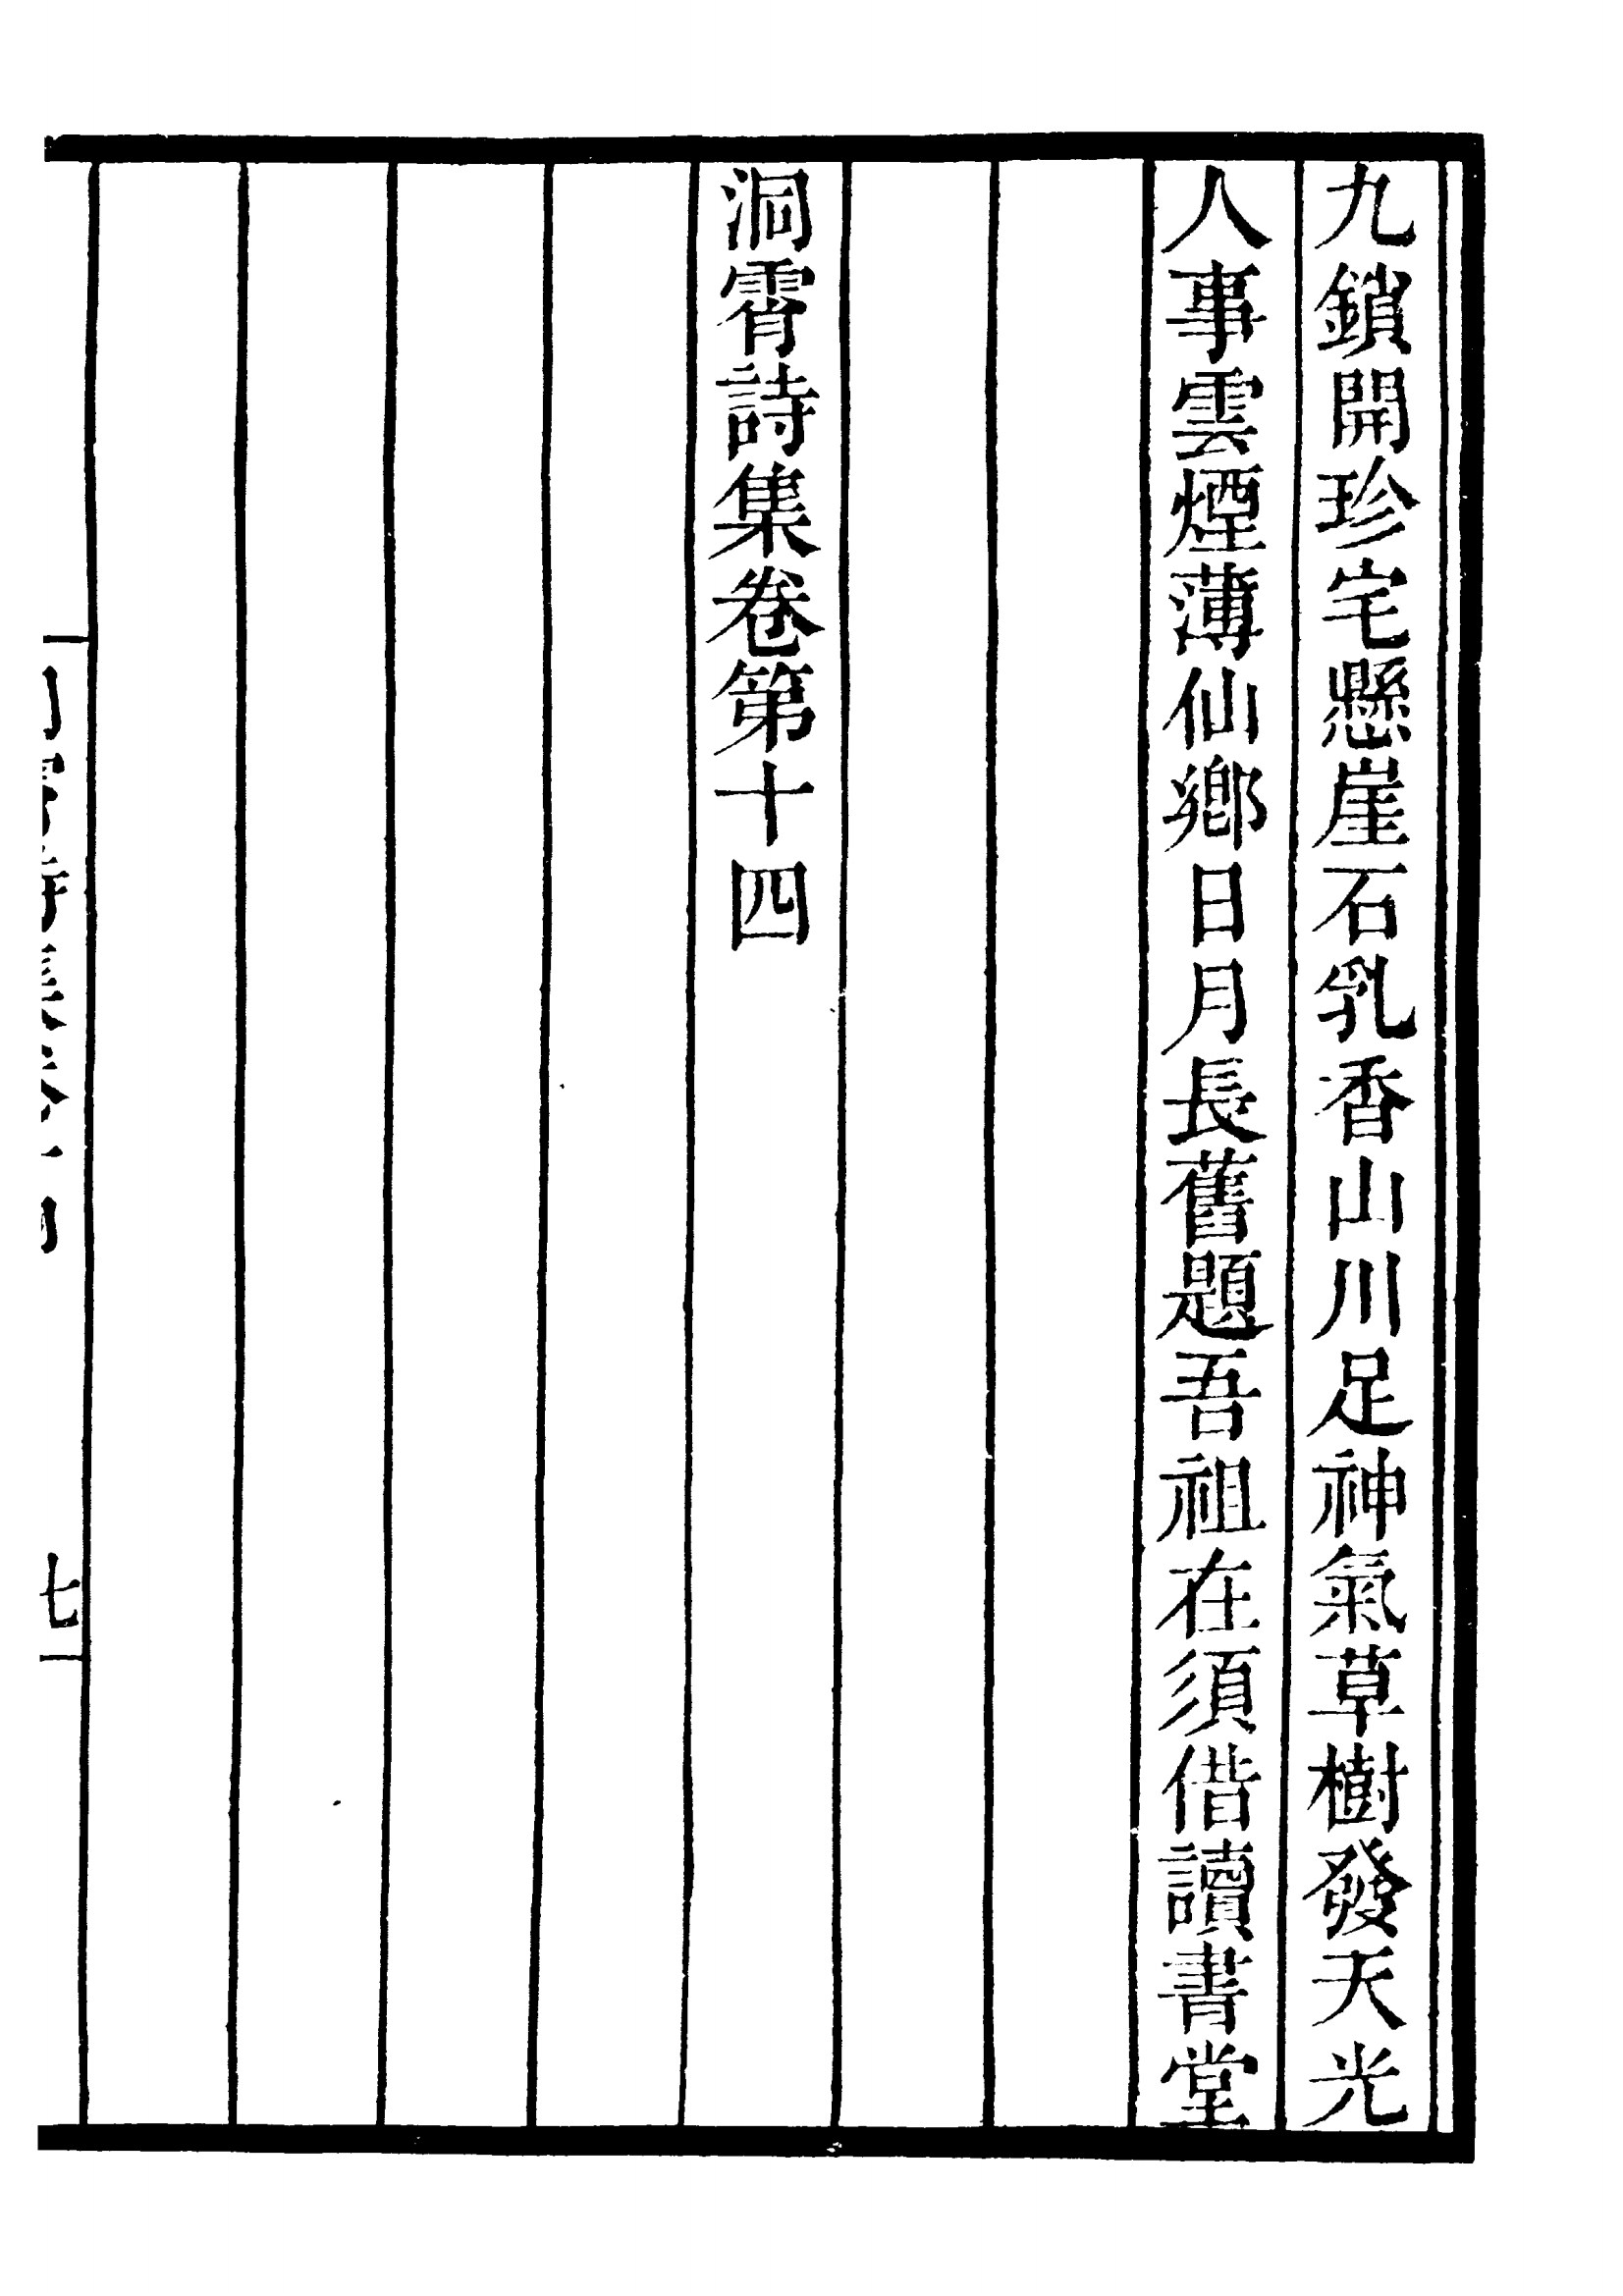 九鎖開珍宅懸崖石乳香山川足神氣草樹發天光
人事雲煙薄仙鄉日月長舊題吾祖在須借讀書堂
洞霄詩集卷第十四
七